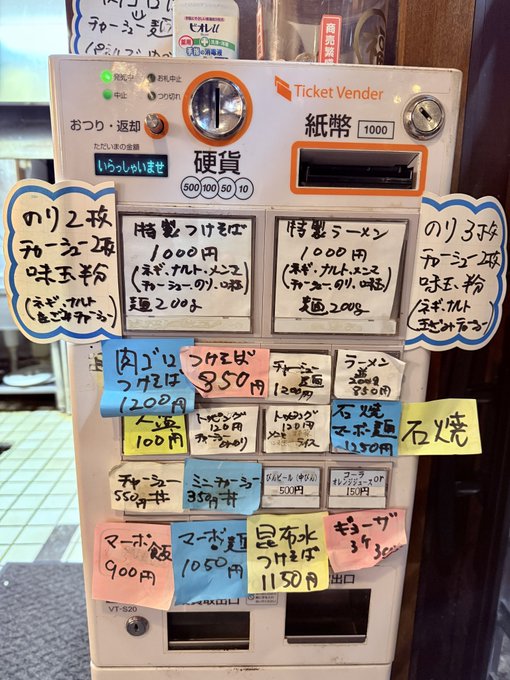 チャーシュー麺
ビオレu
手指の消毒液
商売繁盛
発売中
お札中止
中止
つり切れ
おつり・返却
ただいまの金額
いらっしゃいませ
硬貨
500 100 50 10
Ticket Vender
紙幣 1000
のり2枚
チャーシュー2枚
味玉
ネギ・ナルト
特製つけそば
1000円
(ネギ・ナルト・メンマ
チャーシュー、のり、味玉)
麺200g
特製ラーメン
1000円
(ネギ・ナルト・メンマ
チャーシュー、のり、味玉)
麺200g
のり3枚
チャーシュー2枚
味玉
ネギ・ナルト
肉ゴロ
つけそば
1200円
つけそば
850円
チャーシュー
麺
1200円
ラーメン
並200g
850円
大盛
100円
トッピング
120円
チャーシュー
のり
トッピング
120円
ライス
石焼
マーボ麺
1250円
石焼
チャーシュー
550円 丼
ミニチャーシュー
350円 丼
びんビール(中びん)
500円
コーラor
オレンジジュース
150円
マーボ飯
900円
マーボ麺
1050円
昆布水
つけそば
1150円
ギョーザ
3ケ
VT-S20